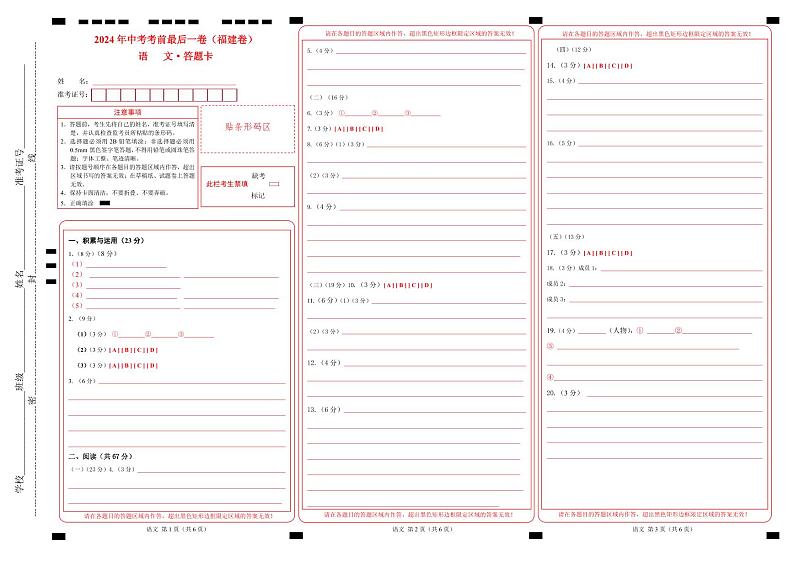 学校
班级
姓名
准考证号
密
封
线
2024 年中考考前最后一卷（福建卷）
语 文·答题卡
姓 名：
准考证号：
注意事项
1．答题前，考生先将自己的姓名，准考证号填写清
楚，并认真检查监考员所粘贴的条形码。
2．选择题必须用 2B 铅笔填涂；非选择题必须用
0.5mm 黑色签字笔答题，不得用铅笔或圆珠笔答
题；字体工整、笔迹清晰。
3．请按题号顺序在各题目的答题区域内作答，超出
区域书写的答案无效；在草稿纸、试题卷上答题
无效。
4．保持卡面清洁，不要折叠、不要弄破。
5．正确填涂
贴条形码区
此栏考生禁填
缺考
标记
一、积累与运用（23 分）
1.（8 分）（8 分）
（1）
（2）
（3）
（4）
（5）
2. （9 分）
（1）（3 分） ① ② ③
（2）（3 分）[ A ] [ B ] [ C ] [ D ]
（3）（3 分）[ A ] [ B ] [ C ] [ D ]
3. （6 分）
二、阅读（共 67 分）
（一）（23 分）4.（3 分）
请在各题目的答题区域内作答，超出黑色矩形边框限定区域的答案无效！
语文 第 1 页（共 6 页）
请在各题目的答题区域内作答，超出黑色矩形边框限定区域的答案无效！
5.（4 分）
（二）（16 分）
6.（3 分） ① ② ③
7.（3 分）[ A ] [ B ] [ C ] [ D ]
8.（6 分）（1）（3 分）
（2）（3 分）
9.（4 分）
（三）（19 分）10.（3 分）[ A ] [ B ] [ C ] [ D ]
11.（6 分）（1）（3 分）
（2）（3 分）
12.（4 分）
13.（6 分）
请在各题目的答题区域内作答，超出黑色矩形边框限定区域的答案无效！
语文 第 2 页（共 6 页）
请在各题目的答题区域内作答，超出黑色矩形边框限定区域的答案无效！
（四）（12 分）
14.（3 分）[ A ] [ B ] [ C ] [ D ]
15.（4 分）
16.（5 分）
（五）（13 分）
17.（3 分）[ A ] [ B ] [ C ] [ D ]
18.（3 分）成员 1：
成员 2：
成员 3：
19.（4 分） （人物），① ②
③
④
20.（3 分）
请在各题目的答题区域内作答，超出黑色矩形边框限定区域的答案无效！
语文 第 3 页（共 6 页）